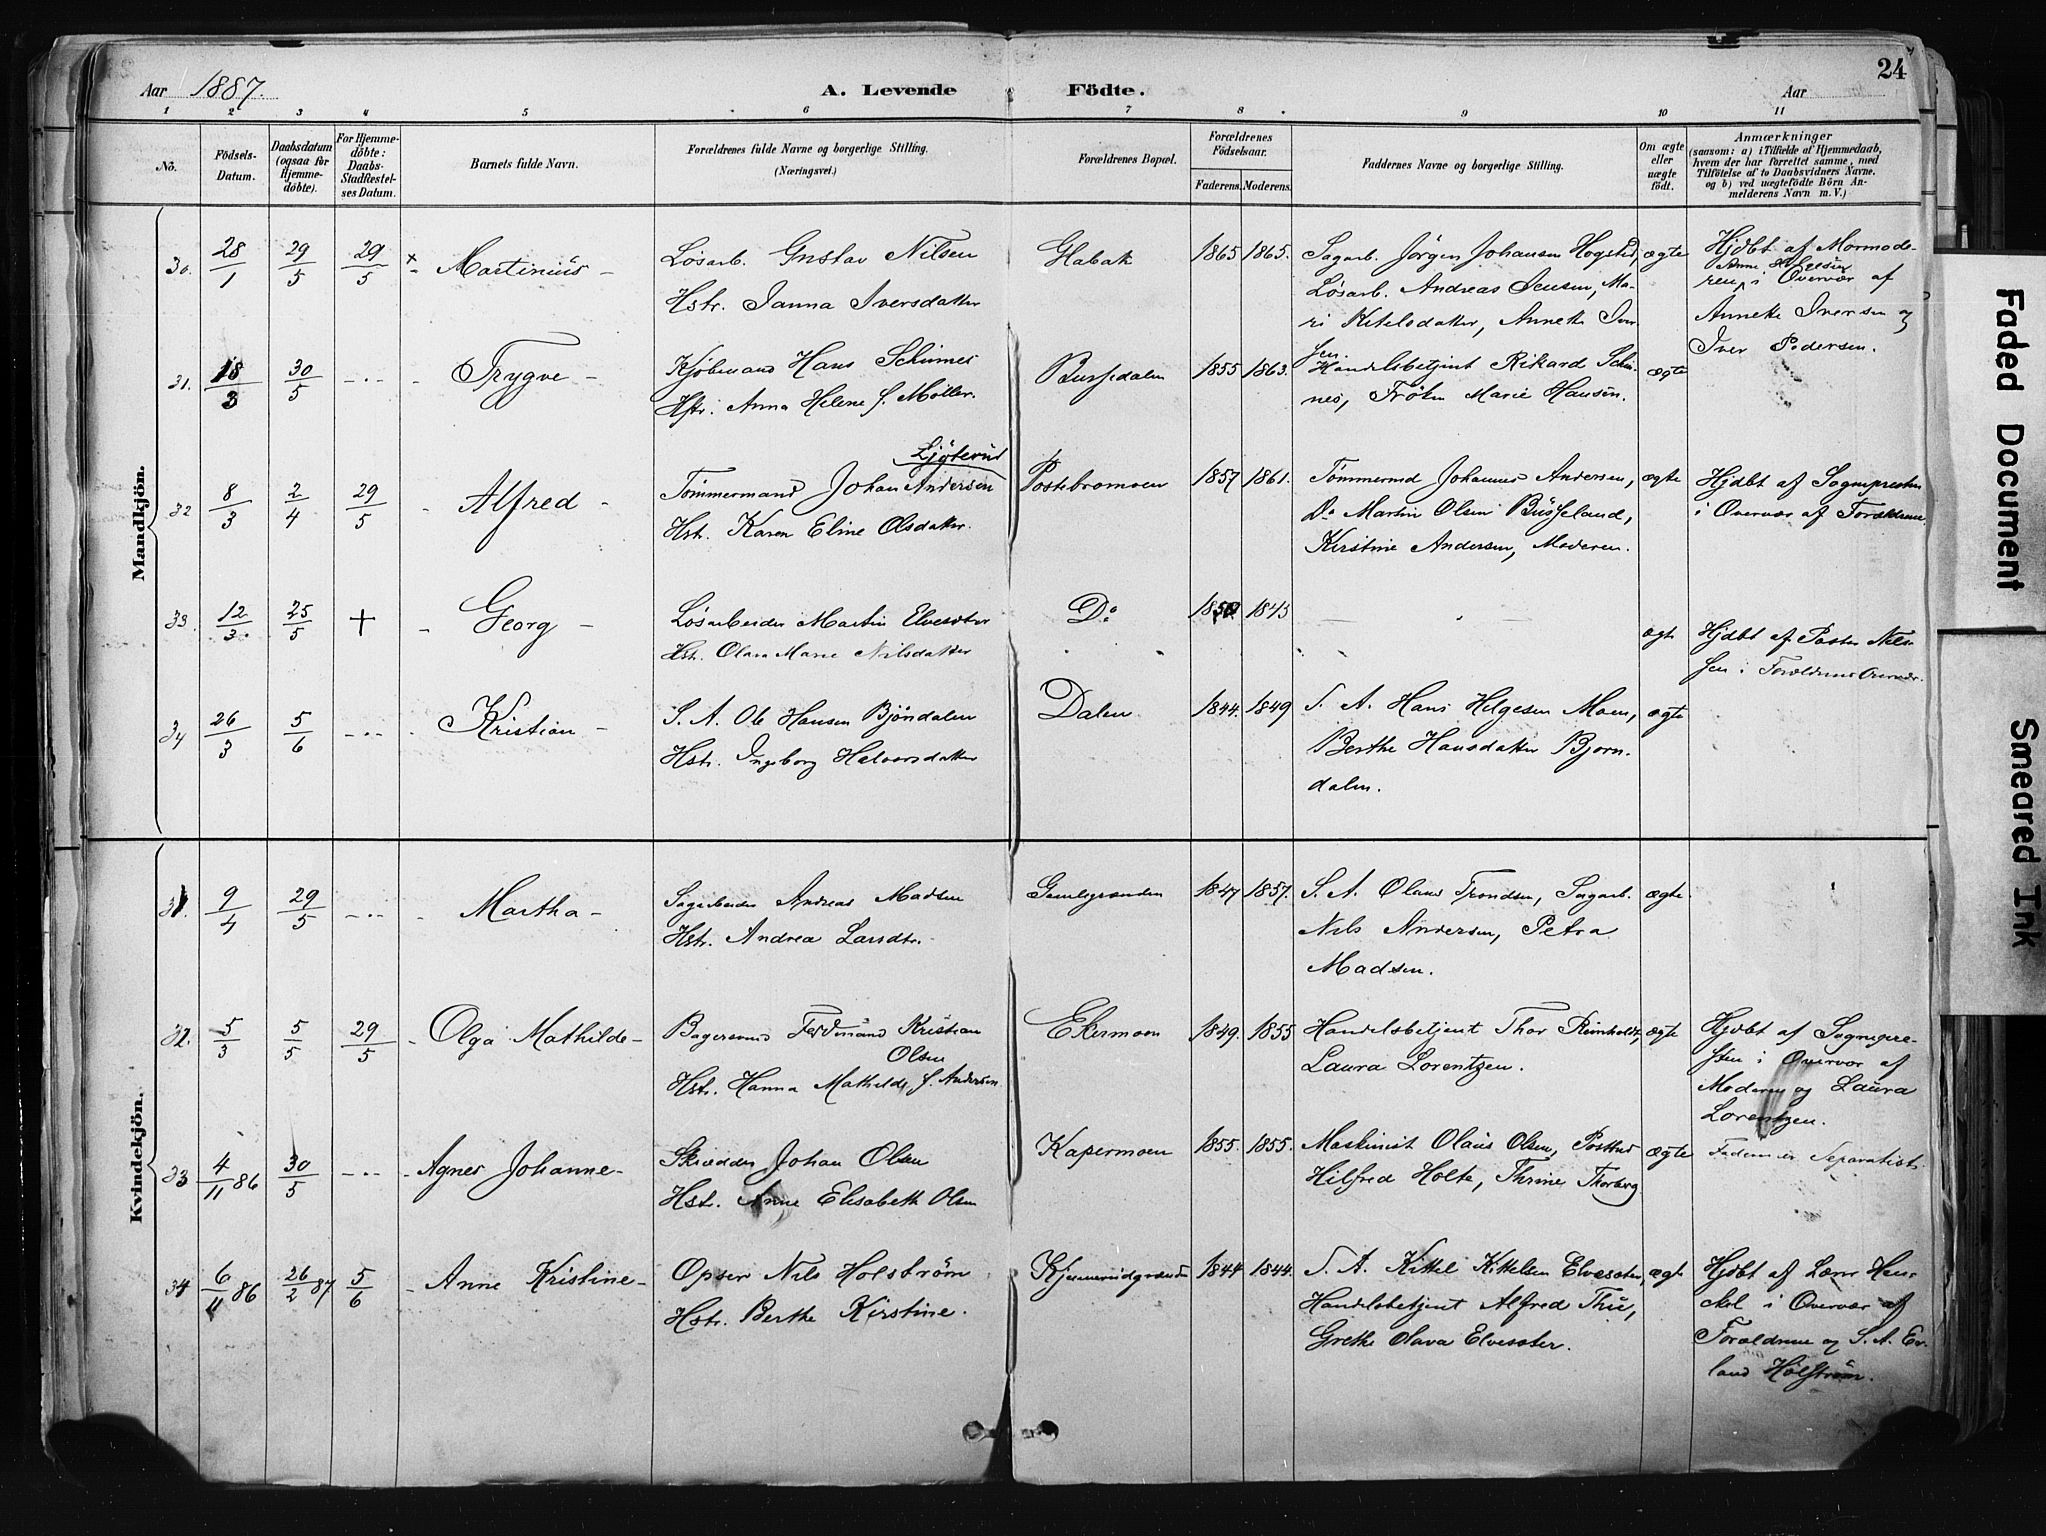 Aar 1887. A. Levende Födte. Aar 24
1 2 3 4 5 6 7 8 9 10 11
No.
Födsels-Datum.
Daabsdatum (ogsaa for Hjemme-döbte).
For Hjemme-döbte: Daabs-Stadfæstel-ses Datum.
Barnets fulde Navn.
Forældrenes fulde Navne og borgerlige Stilling.
(Næringsvei.)
Forældrenes Bopæl.
Forældrenes Födselsaar.
Faderens. Moderens.
Faddernes Navne og borgerlige Stilling.
Om ægte eller uægte födt.
Anmærkninger
(saasom: a) i Tilfælde af Hjemmedaab,
hvem der har forrettet samme, med
Tilföielse af to Daabsvidners Navne,
og b) ved uægtefödte Börn An-
melderens Navn m.V.)
Mandkjön.
30. 28/1 29/5 29/5 × Martinius - Løsarb. Gustav Nilsen
Hstr. Janna Iversdatter
Glabak 1865 1865.
Sagarb. Jørgen Johansen Hogstad,
Løsarb. Andreas Jensen, Ma-
ri Ketelsdatter, Annette Iver
sen.
ægte
Hjdbt af Mormode-
ren i Overvær af
Annette Iversen og
Iver Pedersen.
31. 18/3 30/5 - . - Trygve - Kjøbmand Hans Schirnes
Hstr. Anna Helene f. Møller.
Bussedalen 1855 1863.
Handelsbetjent Rikard Schir-
nes, Frøken Marie Hansen.
ægte
32 8/3 2/4 29/5 - Alfred - Tømmermand Johan Andersen
Ljøterud
Hstr. Karen Eline Olsdatter.
Postebromoen 1857 1861.
Tømmermd Johannes Andersen,
Do Martin Olsen Büsseland,
Kirstine Andersen, Moderen.
ægte
Hjdbt af Sognepresten
i Overvær af Forældrene.
33. 12/3 25/5 + - Georg - Løsarbeider Martin Elvesæter
Hstr. Olava Marie Nilsdatter
Do 1850 1843
ægte
Hjdbt af Pastor Niels-
sen i Forældrenes Overvær.
34 26/3 5/6 - . - Kristian - S. A. Ole Hansen Bjøndalen
Hstr. Ingeborg Halvorsdatter
Dalen 1844. 1849
S. A. Hans Helgesen Moen,
Berthe Hansdatter Bjørn-
dalen.
ægte
Kvindekjön.
31. 9/4 29/5 - . - Martha - Sagarbeider Andreas Madsen
Hstr. Andrea Larsdtr.
Gamlegrænden 1847 1857.
S. A. Olaus Trondsen, Sagarb.
Nils Andersen, Petra
Madsen.
ægte.
32. 5/3 5/5 29/5 - Olga Mathilde - Bagersvend Ferdinand Kristian
Olsen
Hstr. Hanna Mathilde f. Andersen
Ekermoen 1849. 1855
Handelsbetjent Thor Reinholdt,
Laura Lorentzen.
ægte
Hjdbt af Sognepre-
sten i Overvær af
Moderen og Laura
Lorentzen.
33 4/11 86 30/5 - . - Agnes Johanne - Skrædder Johan Olsen
Hstr. Anne Elisabeth Olsen
Kapermoen 1855. 1855.
Maskinist Olaus Olsen,
Hilfred Holte, Thrine Thorberg
ægte
Faderen er Separatist.
34 6/11 86 26/2 87 5/6 - Anne Kristine - Opser Nils Holstrøm
Hstr. Berthe Kirstine.
1844 1844.
S. A. Kittel Kittelsen Elvesæter,
Handelsbetjent Alfred Thü,
Grethe Olava Elvesæter.
ægte
Hjdbt af Lærer Hen-
ckel i Overvær af
Forældrene og S. A. Er-
land Holstrøm.
Faded Document
Smeared Ink